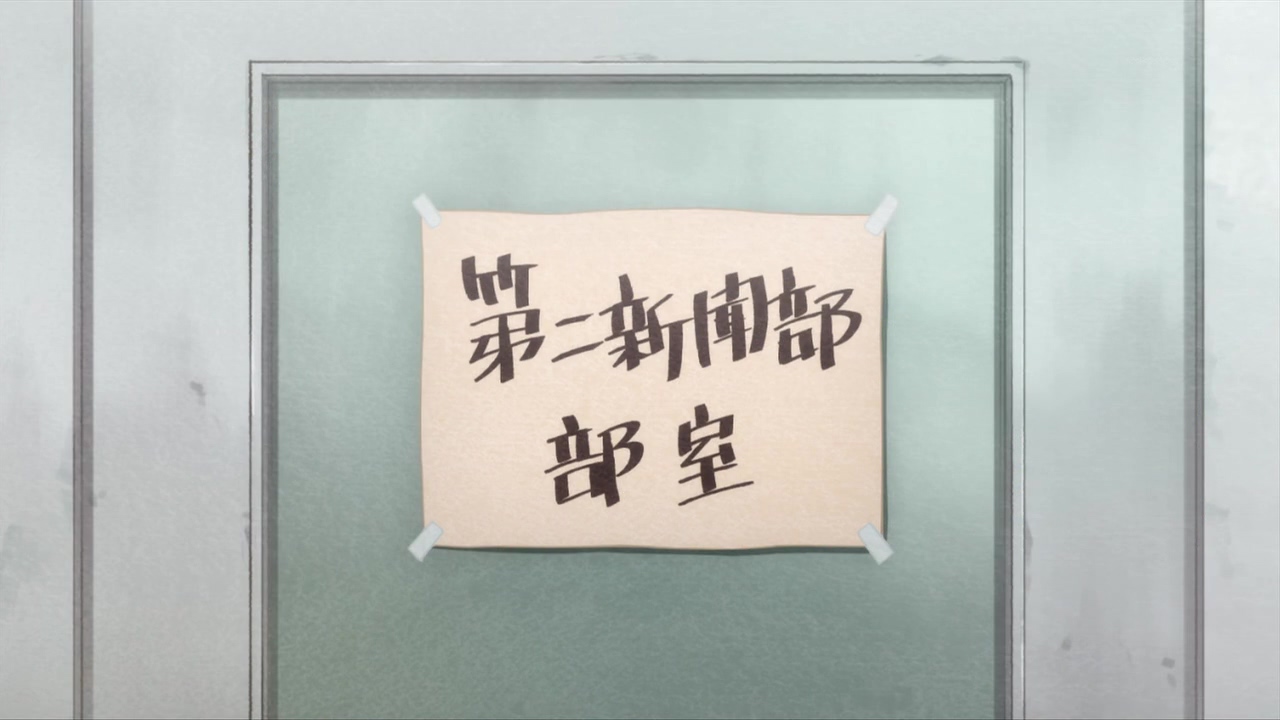 第二新聞部
部室